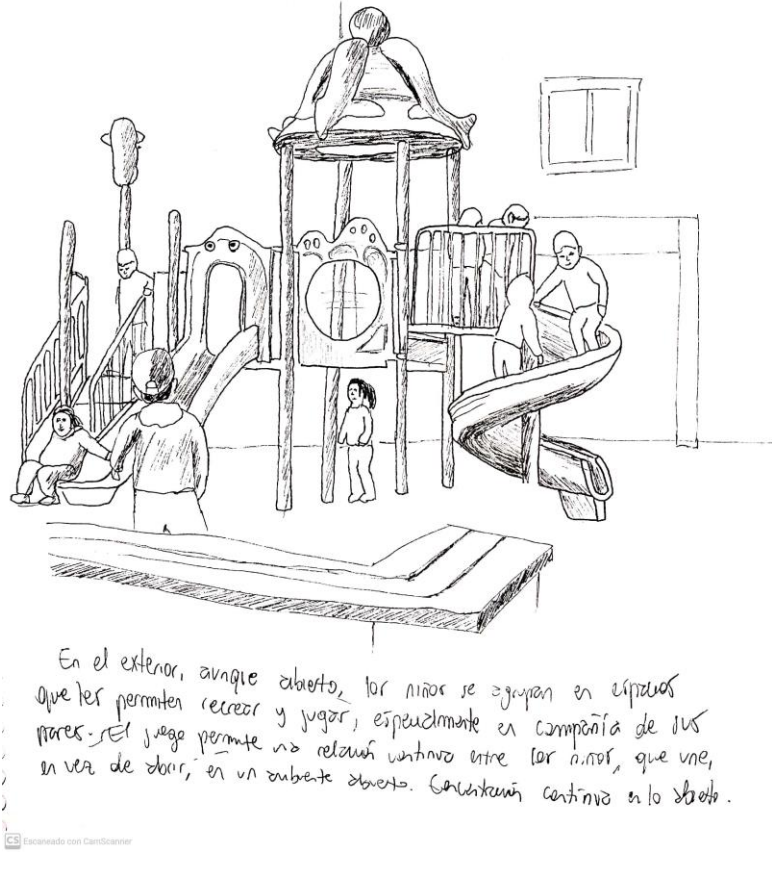 En el exterior, aunque abierto, los niños se agrupan en espacios
que les permiten recrear y jugar, especialmente en compañía de sus
pares. El juego permite una relación continua entre los niños, que une,
en vez de abrir, en un ambiente abierto. continua en lo abierto.
CS Escaneado con CamScanner